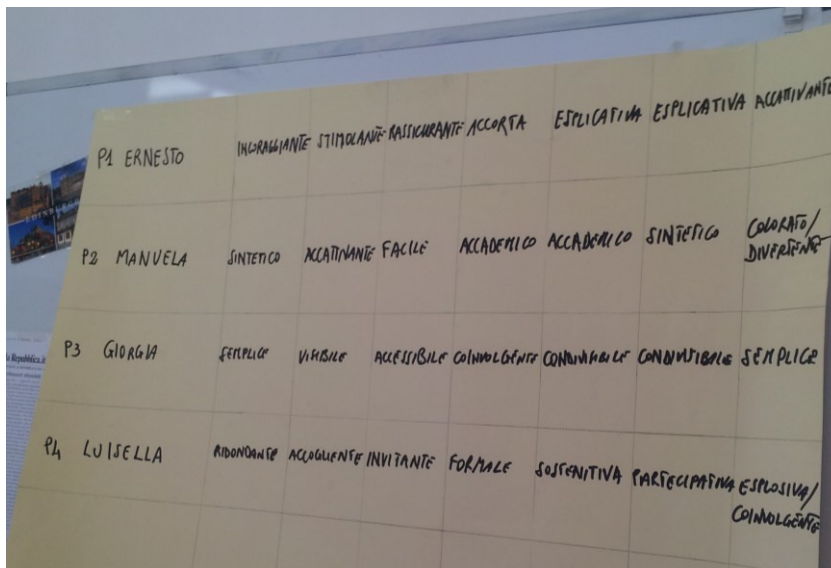 P1 ERNESTO INCORAGGIANTE STIMOLANTE RASSICURANTE ACCORTA ESPLICATIVA ESPLICATIVA ACCATTIVANTE
P2 MANUELA SINTETICO ACCATTIVANTE FACILE ACCADEMICO ACCADEMICO SINTETICO COLORATO/
DIVERTENTE
P3 GIORGIA SEMPLICE VISIBILE ACCESSIBILE COINVOLGENTE CONDIVISIBILE CONDIVISIBILE SEMPLICE
P4 LUISELLA RIDONDANTE ACCOGLIENTE INVITANTE FORMALE SOSTENITIVA PARTECIPATIVA ESPLOSIVA/
COINVOLGENTE
EDINBURGH
la Repubblica.it